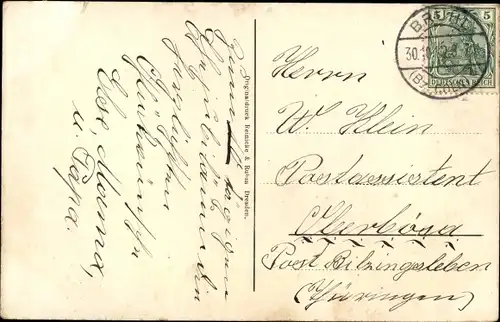 Zum
herzlichsten
Glückwünsche
Else, Mama,
u. Papa.
Originaldruck Reinicke & Rubin Dresden.
BRÜHL
30.10.
5 5
DEUTSCHES REICH
Herrn
W. Klein
Postassistent
Oberbösa
Post Bilzingsleben
(Thüringen)